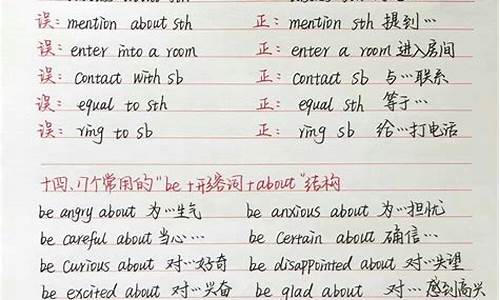 误: mention about sth 正: mention sth 提到…
误: enter into a room 正: enter a room 进入房间
误: Contact with sb 正: Contact sb 与…联系
误: equal to sth 正: equal sth 等于…
误: ring to sb 正: ring sb 给…打电话
十四、17个常用的"be+形容词+about"结构
be angry about 为…生气 be anxious about 为…担忧
be careful about 当心… be certain about 确信…
be curious about 对…好奇 be disappointed about 对…失望
be excited about 对…兴奋 be glad about 对…感到高兴